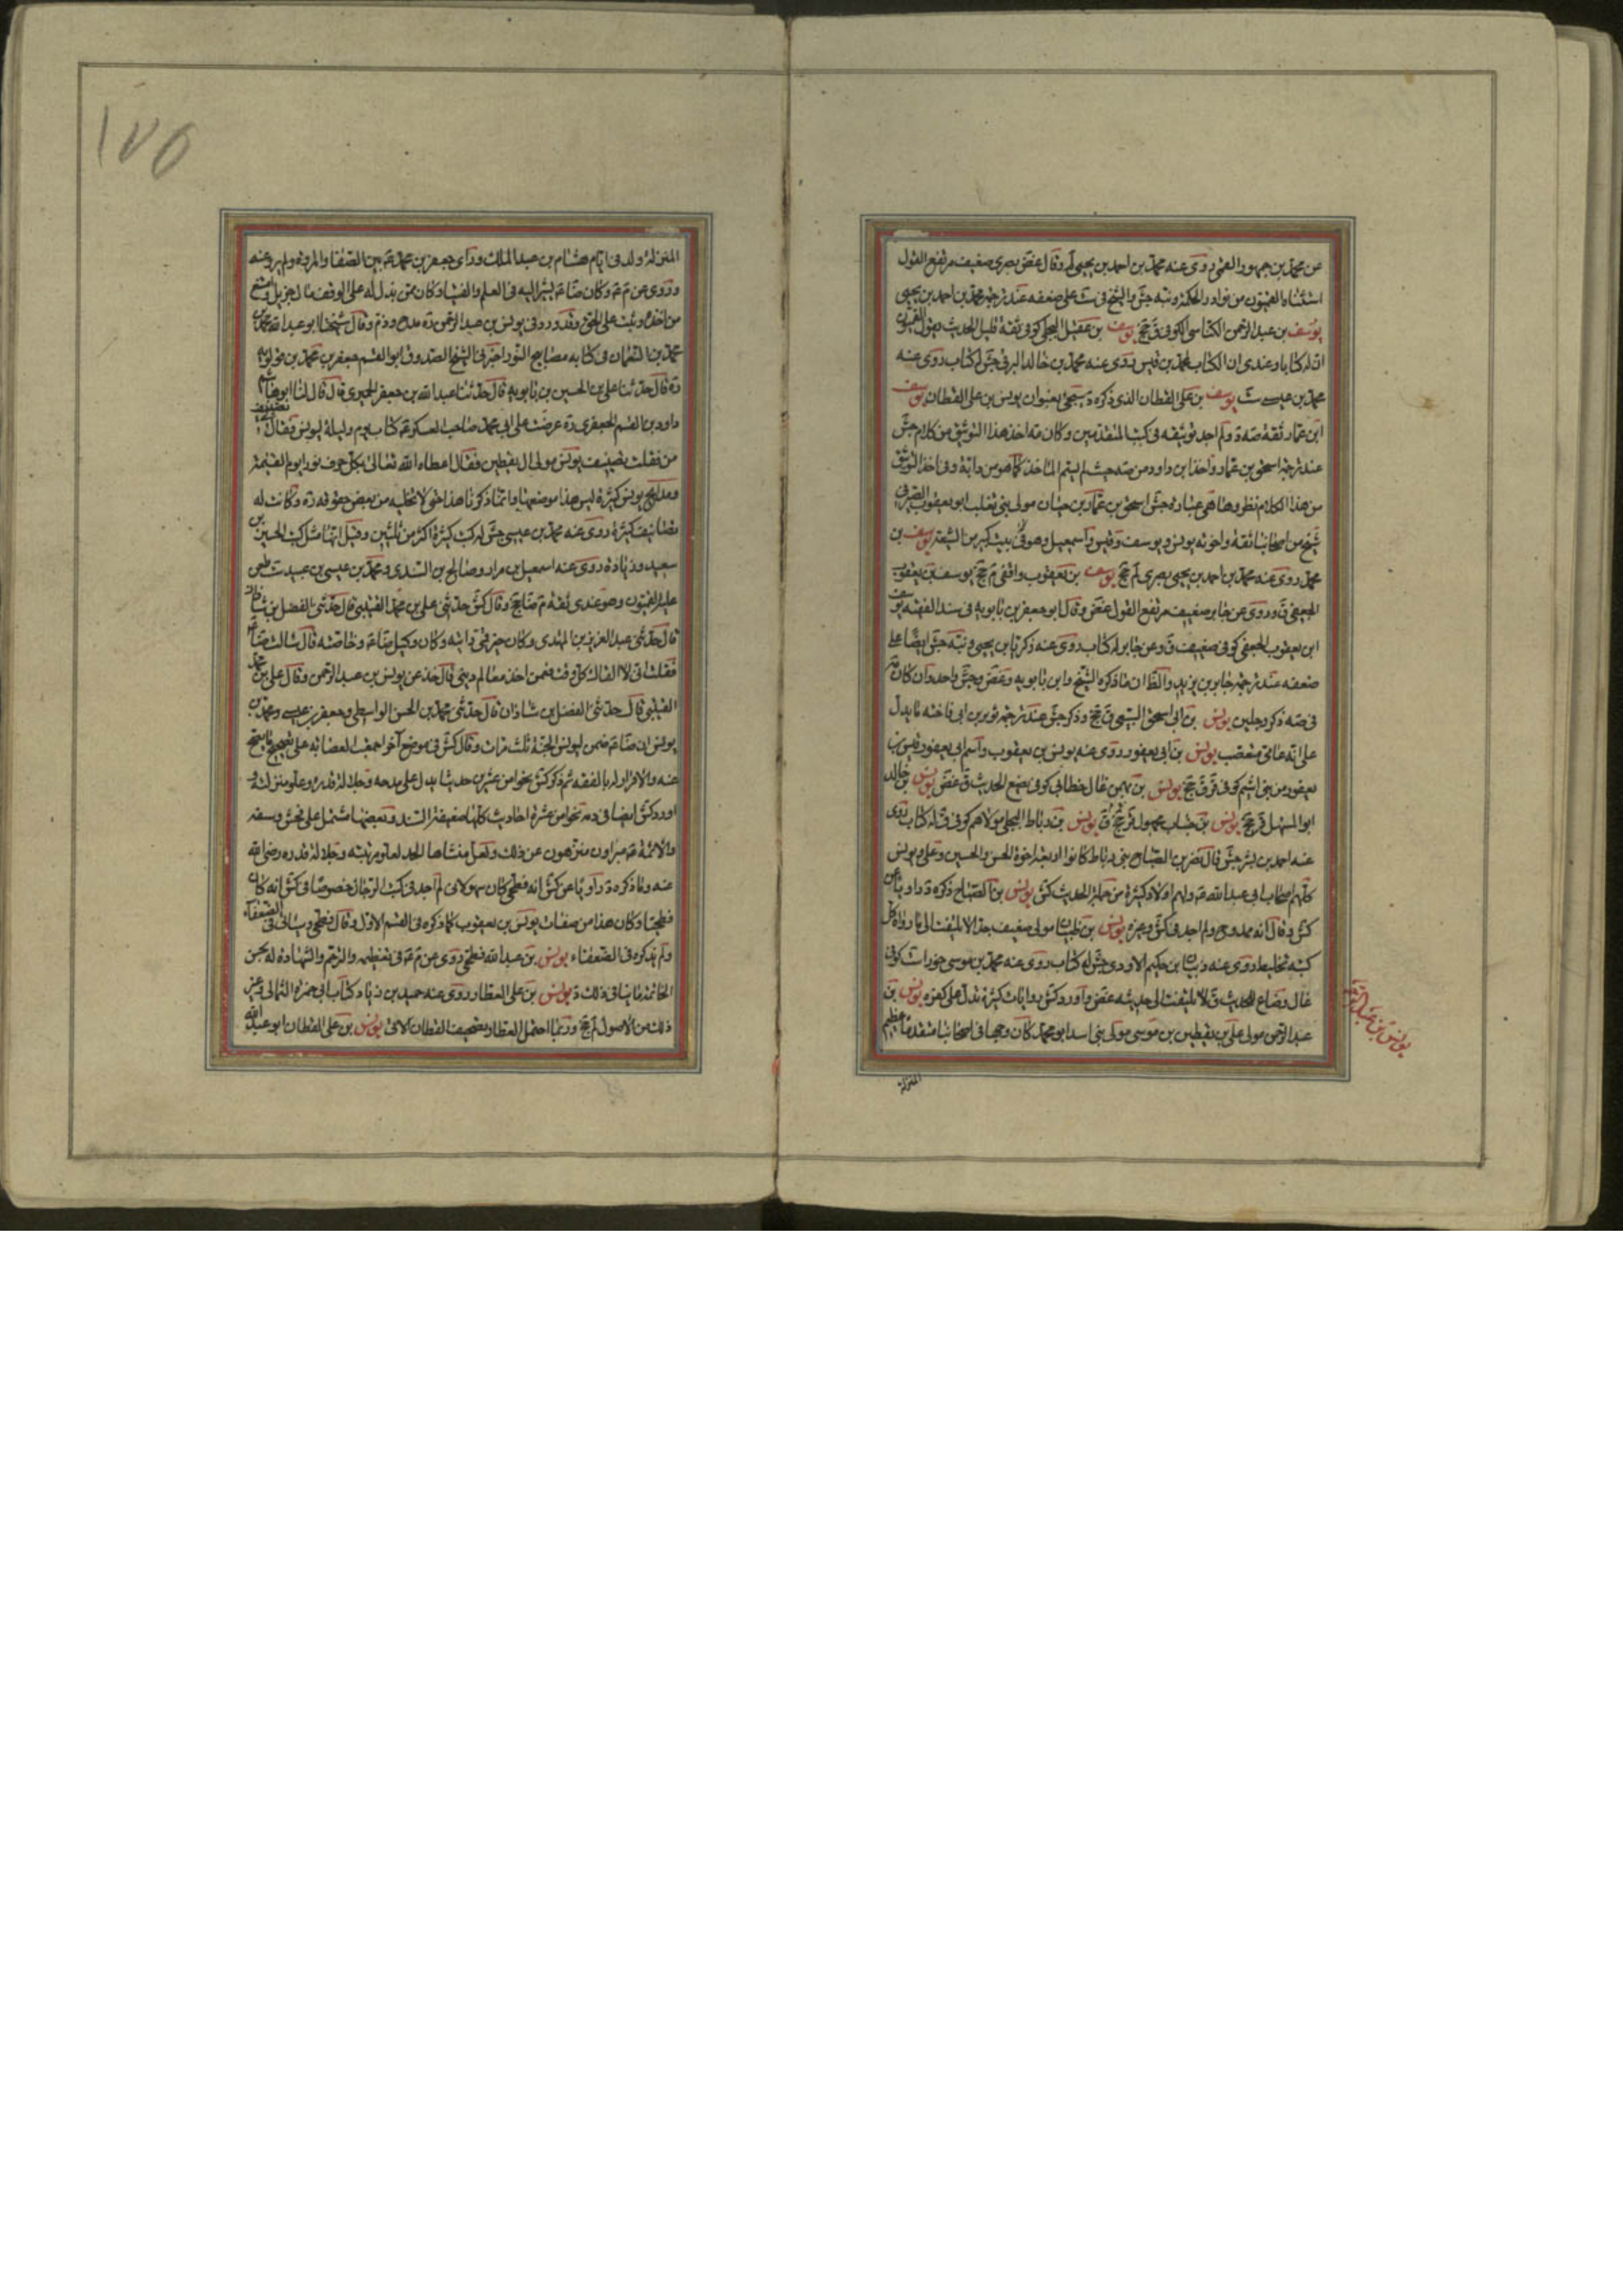 عن محمد بن جمهور العمي روى عنه محمد بن احمد بن يحيى لم وقال غض بصري ضعيف مرتفع القول
استثناه القميون من نوادر الحكمة ونبه جش والشيخ في ست على ضعفه عند ترجمة محمد بن احمد بن يحيى
يوسف بن عبد الرحمن الكناسي الكوفي ق جخ يوسف بن عقيل البجلي كوفي ثقة قليل الحديث يقول القميون
ان له كتابا وعندي ان الكتاب لمحمد بن قيس روى عنه محمد بن خالد البرقي جش له كتاب روى عنه
محمد بن عيسى ست يوسف بن علي القطان الذي ذكره د سيجيء بعنوان يونس بن علي القطان يوسف
ابن عمار ثقة صه د ولم اجد توثيقه في كتب المتقدمين وكان مه اخذ هذا التوثيق من كلام جش
عند ترجمة اسحق بن عمار واخذ ابن داود من صه حيث لم يسم المأخذ كما هو من دابه وفي اخذ التوثيق
من هذا الكلام نظر وها هي عبارة جش اسحق بن عمار بن حيان مولى بني تغلب ابو يعقوب الصيرفي
شيخ من اصحابنا ثقة واخوته يونس ويوسف وقيس واسمعيل وهو في بيت كبير من الشيعة يوسف بن
محمد روى عنه محمد بن احمد بن يحيى بصري لم جخ يوسف بن يعقوب واقفي م جخ يوسف بن يعقوب
الجعفي ق وروى عن جابر ضعيف مرتفع القول غض وقال ابو جعفر بن بابويه في سند الفقيه يوسف
ابن يعقوب الجعفي كوفي ضعيف ق وعن جابر له كتاب روى عنه زكريا بن يحيى ونبه جش ايضا على
ضعفه عند ترجمة جابر بن يزيد والظ ان ما ذكره الشيخ وابن بابويه وغض وجش واحد وان كان
في صه ذكر رجلين يونس بن ابي اسحق السبيعي ق جخ وذكر جش عند ترجمة ثوير بن ابي فاختة ما يدل
على انه عامي متعصب يونس بن ابي يعفور روى عنه يونس بن يعقوب واسم ابي يعفور قيس بن
يعفور من بني اشيم كوفي ق ق جخ يونس بن بهمن غال خطابي كوفي يضع الحديث ق غض يونس بن خالد
ابو المسهل ق جخ يونس بن خباب مجهول ق جخ يونس بن رباط البجلي مولاهم كوفي ثقة له كتاب روى
عنه احمد بن بشر جش قال نصر بن الصباح بنو رباط كانوا اربعة اخوة الحسن والحسين وعلي ويونس
كلهم اصحاب ابي عبد الله ع ولهم اولاد كثيرة من حملة الحديث كش يونس بن الصباح ذكره د راويا عن
كش وقال انه ممدوح ولم اجد في كش وغيره يونس بن ظبيان مولى ضعيف جدا لا يلتفت الى ما رواه كل
كتبه تخليط روى عنه ذبيان بن حكيم الاودي جش له كتاب روى عنه محمد بن موسى خوراء ست كوفي
غال وضاع للحديث ق لا يلتفت الى حديثه غض واورد كش روايات كثيرة تدل على كفره يونس بن
عبد الرحمن مولى علي بن يقطين بن موسى مولى بني اسد ابو محمد كان وجها في اصحابنا متقدما عظيم
يونس بن عبد الرحمن
المنزلة
١٧٥
المنزلة ولد في ايام هشام بن عبد الملك ورأى جعفر بن محمد ع بين الصفا والمروة ولم يرو عنه
وروى عن م ع وكان ضا ع يشير اليه في العلم والفتيا وكان ممن بذل له على الوقف مال جزيل وامتنع
من اخذه وثبت على الحق وقد ورد في يونس بن عبد الرحمن ره مدح وذم وقال شيخنا ابو عبد الله محمد بن
محمد بن النعمان في كتابه مصابيح النور اخبرني الشيخ الصدوق ابو القسم جعفر بن محمد بن قولويه
ره قال حدثنا علي بن الحسين بن بابويه قال حدثنا عبد الله بن جعفر الحميري قال قال لنا ابو هاشم
داود بن القسم الجعفري ره عرضت على ابي محمد صاحب العسكر ع كتاب يوم وليلة ليونس فقال تصنيف
من فقلت تصنيف يونس مولى ال يقطين فقال اعطاه الله تعالى بكل حرف نورا يوم القيمة
ومدايح يونس كثيرة ليس هذا موضعها وانما ذكرنا هذا حتى لا نخليه من بعض حقوقه ره وكانت له
تصانيف كثيرة روى عنه محمد بن عيسى جش له كتب كثيرة اكثر من ثلثين وقيل انها مثل كتب الحسين بن
سعيد وزيادة روى عنه اسمعيل بن مرار وصالح بن السندي ومحمد بن عيسى بن عبيد ست طعن
عليه القميون وهو عندي ثقة م ضا جخ وقال كش حدثني علي بن محمد القتيبي قال حدثني الفضل بن شاذان
قال حدثني عبد العزيز بن المهتدي وكان خير قمي رايته وكان وكيل ضا ع وخاصته قال سالت ضا ع
فقلت اني لا القاك كل وقت فعمن اخذ معالم ديني قال خذ عن يونس بن عبد الرحمن وقال علي بن محمد
القتيبي قال حدثني الفضل بن شاذان قال حدثني محمد بن الحسن الواسطي وجعفر بن عيسى ومحمد بن
يونس ان ضا ع ضمن ليونس الجنة ثلث مرات وقال كش في موضع آخر اجمعت العصابة على تصحيح ما يصح
عنه والاقرار له بالفقه ثم ذكر كش نحوا من عشرين حديثا يدل على مدحه وجلالة قدره وعلو منزلته و
اورد كش ايضا في ذمه نحوا من عشرة احاديث كلها ضعيفة السند وبعضها مشتمل على فحش وسفه
والائمة ع مبراون منزهون عن ذلك ولعل منشاها الحسد لعلو مرتبته وجلالة قدره رضي الله
عنه وما ذكره د راويا عن كش انه فطحي كان سهوا لاني لم اجد في كتب الرجال خصوصا في كش انه كان
فطحيا وكان هذا من صفات يونس بن يعقوب كما ذكره في القسم الاول وقال فطحي وسياتي في الضعفاء
ولم يذكره في الضعفاء يونس بن عبد الله فطحي روى عن م ع في تعظيمه والترحم والشهادة له بحسن
الخاتمة ما ينافي ذلك د يونس بن علي العطار روى عنه حميد بن زياد كتاب ابي حمزة الثمالي وغير
ذلك من الاصول لم جخ وربما احتمل العطار تصحيف القطان الاتي يونس بن علي القطان ابو عبد الله